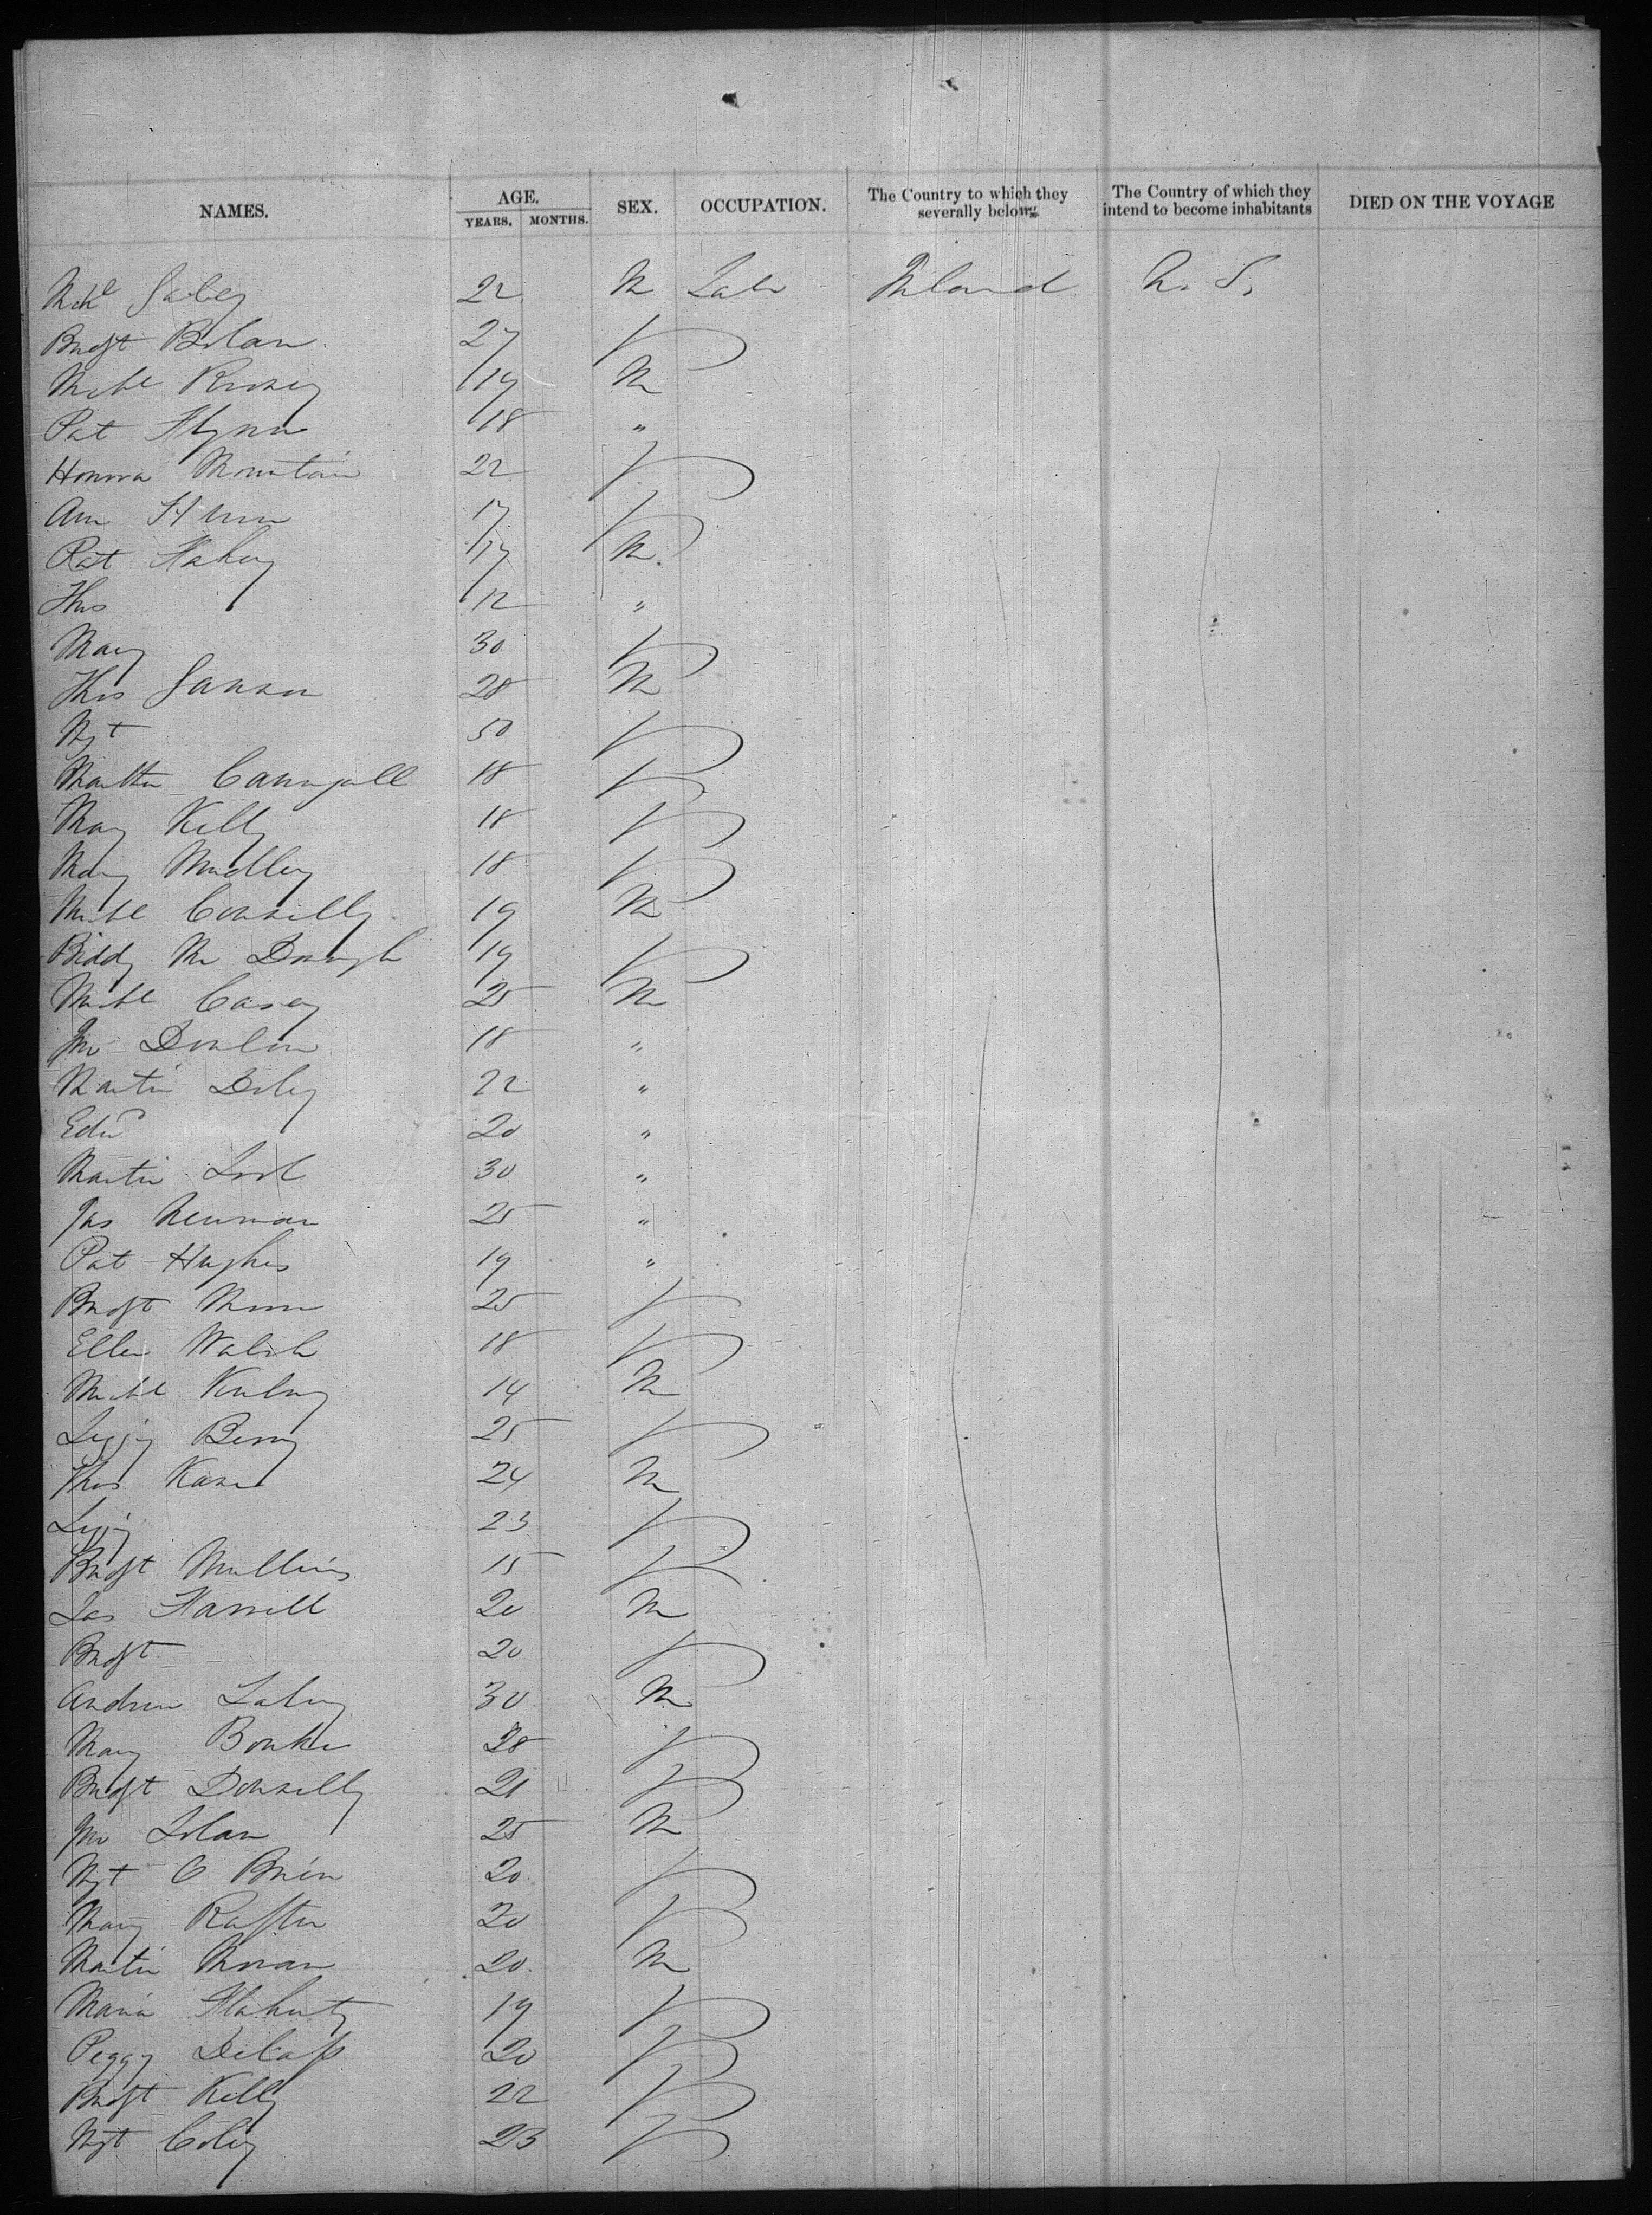 NAMES. AGE. YEARS. MONTHS. SEX. OCCUPATION. The Country to which they severally belong. The Country of which they intend to become inhabitants DIED ON THE VOYAGE
22 M Lab Ireland U. S.
Bridgt Bolan 27
Michl 19 M
Pat Flynn 18 "
Honora Mountain 22
Ann 17
Pat Fahey 17 M
Thos 12 "
Mary 30
Thos 28 M
Mgt 50
18
Mary Kelly 18
Mary 18
Michl Connelly 19 M
Biddy Mc 19
Michl Casey 25 M
Jno Donlon 18 "
Martin 22 "
Edwd 20 "
Martin 30 "
Jas Newman 25 "
Pat Hughes 19 "
Bridgt 25
Ellen Walsh 18
Michl 14 M
Lizzy Berry 25
Thos Kane 24 M
Lizzy 23
Bridgt Mullins 15
Jas Farrell 20 M
Bridgt 20
Andrew 30 M
Mary Bourke 28
Bridgt Donnelly 21
Jno 25 M
Mgt O Brien 20
Mary Rafter 20
Martin Moran 20 M
Maria Flaherty 19
Peggy 20
Bridgt Kelly 22
Mgt 23